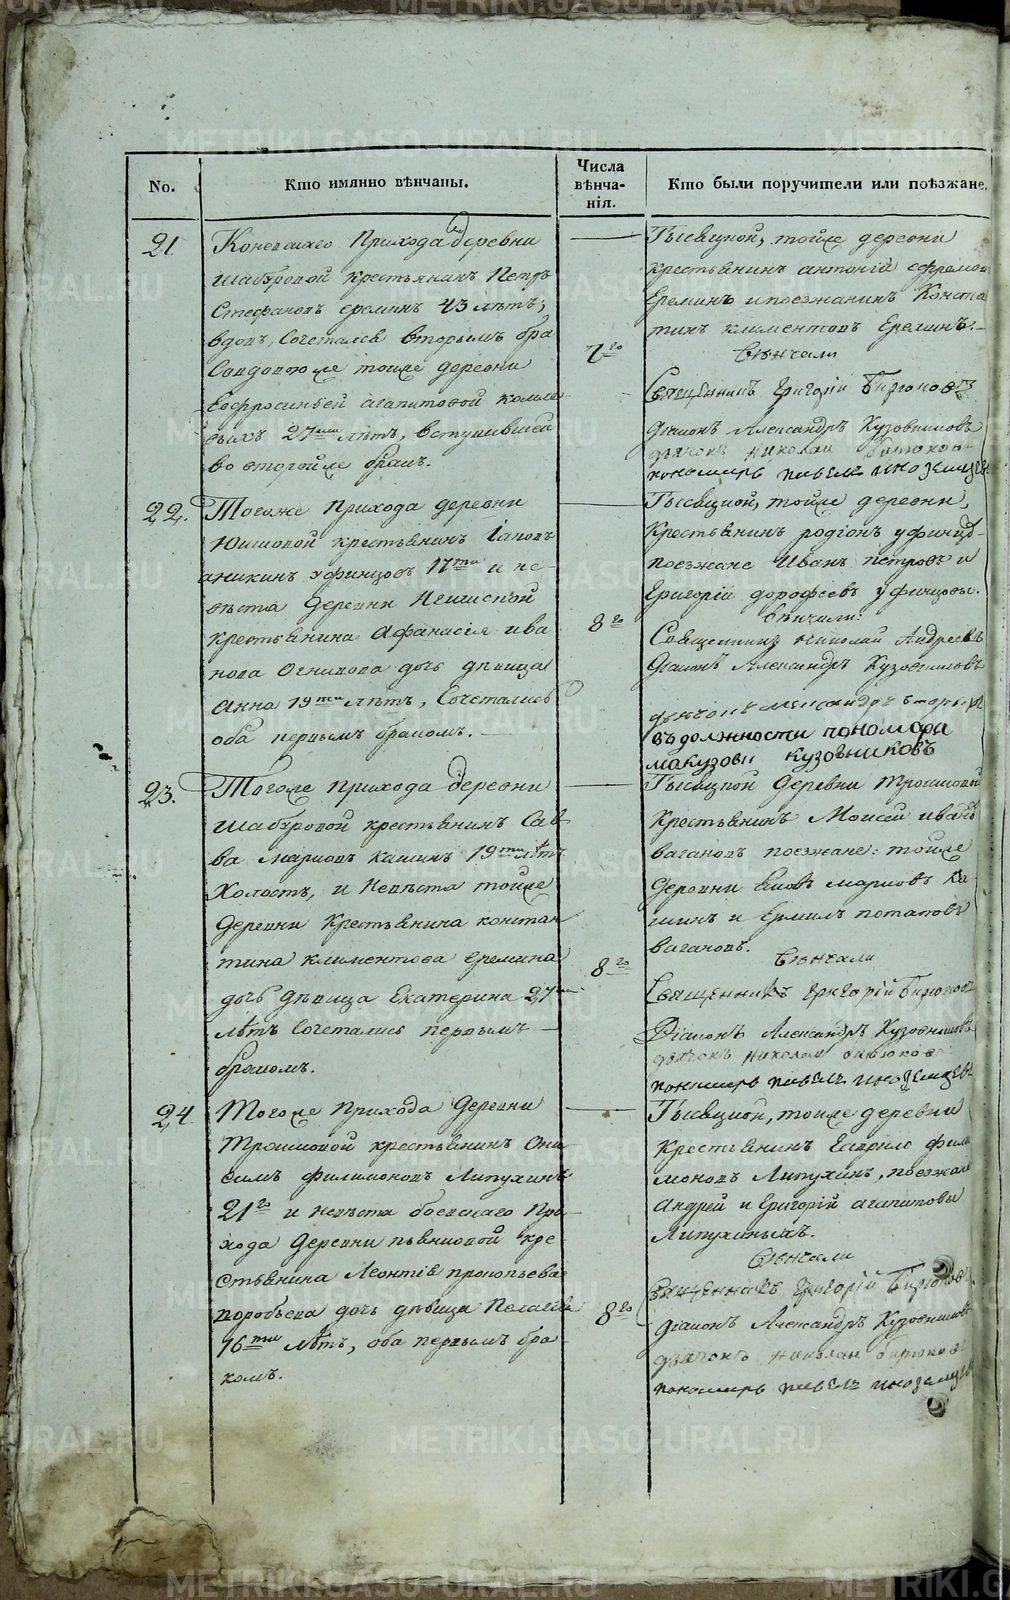 No.
Кто имянно вѣнчаны.
Числа
вѣнча-
нія.
Кто были поручители или поѣзжане.
21
Коневскаго Прихода деревни
Шабуровой крестьянинъ Петръ
Стефановъ еремин 43 лѣтъ,
вдовъ, Сочетался вторымъ бра
комъ тойже деревни
Евфросиньей агапитовой
27ми лѣтъ, вступившей
во второй же бракъ.
7го
Тысяцкой, тойже деревни
крестьянинъ антоній ефремов
Ереминъ и поезжанинъ Конста
тинъ климентовъ Ереминъ.
Вѣнчали
Священникъ Григорій Бирюковъ
діаконъ Александръ Кузовниковъ
дьячокъ николай бирюковъ
пономарь павелъ иноземцев
22.
Тогоже Прихода деревни
Юшковой крестьянинъ Іаковъ
аникинъ уфинцовъ 17ти и не-
вѣста деревни
крестьянина Афанасія ива
нова Огнивова дочь дѣвица
Анна 19ти лѣтъ, Сочетались
оба первымъ бракомъ.
8го
Тысяцкой, тойже деревни,
Крестьянинъ родіонъ уфинцо-
поезжане Иванъ петровъ и
Григорій дорофеевъ уфинцовы.
Вѣнчали:
Священникъ николай Андреевъ
Діаконъ Александръ Кузовниковъ
дьячокъ александръ
въ должности пономаря
кузовниковъ
23.
Тогоже прихода деревни
Шабуровой крестьянинъ Сав-
ва марковъ кашинъ 19ти лѣтъ
Холостъ, и Невѣста тойже
деревни Крестьянина констан
тина климентова еремина
дочь дѣвица Екатерина 27ми
лѣтъ Сочетались первымъ
бракомъ.
8го
Тысяцкой деревни трошковой
Крестьянинъ Моисей ивановъ
вагановъ поезжане: тойже
деревни марковъ Ка-
шинъ и Ермилъ потаповъ
вагановъ.
Вѣнчали
Священникъ Григорій Бирюковъ
Діаконъ Александръ Кузовниковъ
дьячокъ николай бирюковъ
пономарь павелъ иноземцевъ
24
Тогоже Прихода деревни
Трошковой крестьянинъ Они
симъ филимоновъ Липухинъ
21го и невѣста боевскаго При
хода деревни пьянковой кре
стьянина Леонтія прокопьева
воробьева дочь дѣвица Пелагія
16ти лѣтъ, оба первымъ бра
комъ.
8го
Тысяцкой, тойже деревни
крестьянинъ Гаврило фили
моновъ Липухинъ, поезжане
Андрей и Григорій агапитовы
Липухиныхъ.
Вѣнчали
Священникъ Григорій Бирюковъ
діаконъ Александръ Кузовниковъ
дьячокъ николай бирюковъ
пономарь павелъ иноземцевъ
METRIKI.GASO-URAL.RU